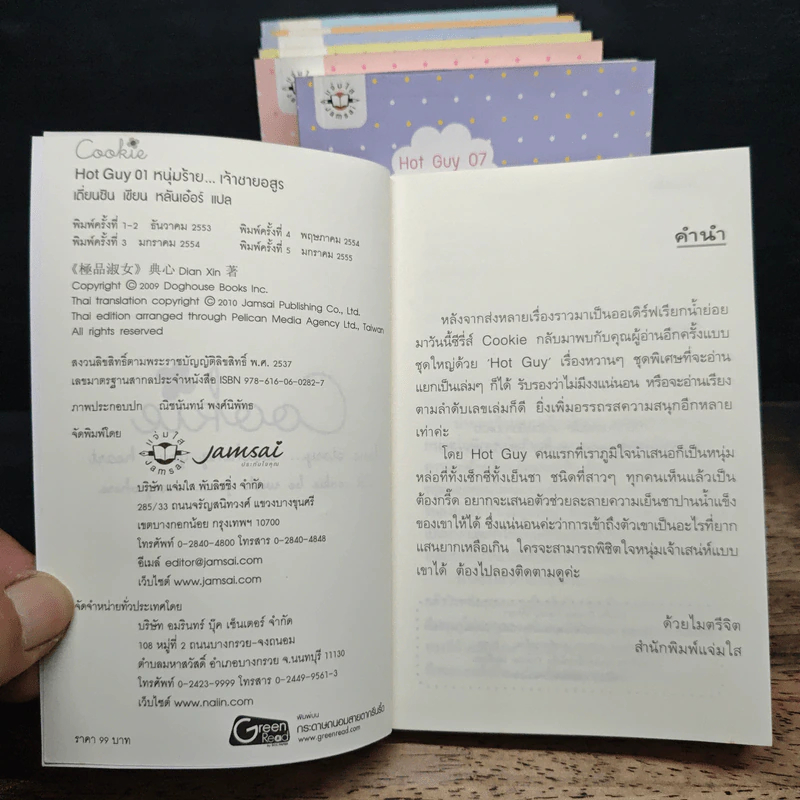 แจ่มใส
Jamsai
Hot Guy 07
Cookie
Hot Guy 01 หนุ่มร้าย... เจ้าชายอสูร
เตี่ยนซิน เขียน หลันเอ๋อร์ แปล
พิมพ์ครั้งที่ 1-2 ธันวาคม 2553 พิมพ์ครั้งที่ 4 พฤษภาคม 2554
พิมพ์ครั้งที่ 3 มกราคม 2554 พิมพ์ครั้งที่ 5 มกราคม 2555
《極品淑女》典心 Dian Xin 著
Copyright © 2009 Doghouse Books Inc.
Thai translation copyright © 2010 Jamsai Publishing Co., Ltd.
Thai edition arranged through Pelican Media Agency Ltd., Taiwan
All rights reserved
สงวนลิขสิทธิ์ตามพระราชบัญญัติลิขสิทธิ์ พ.ศ. 2537
เลขมาตรฐานสากลประจำหนังสือ ISBN 978-616-06-0282-7
ภาพประกอบปก ณิชนันทน์ พงศ์นิพัทธ
จัดพิมพ์โดย
แจ่มใส
Jamsai
Jamsai
ประทับใจคุณ
บริษัท แจ่มใส พับลิชชิ่ง จำกัด
285/33 ถนนจรัญสนิทวงศ์ แขวงบางขุนศรี
เขตบางกอกน้อย กรุงเทพฯ 10700
โทรศัพท์ 0-2840-4800 โทรสาร 0-2840-4848
อีเมล์ editor@jamsai.com
เว็บไซต์ www.jamsai.com
จัดจำหน่ายทั่วประเทศโดย
บริษัท อมรินทร์ บุ๊ค เซ็นเตอร์ จำกัด
108 หมู่ที่ 2 ถนนบางกรวย-จงถนอม
ตำบลมหาสวัสดิ์ อำเภอบางกรวย จ.นนทบุรี 11130
โทรศัพท์ 0-2423-9999 โทรสาร 0-2449-9561-3
เว็บไซต์ www.naiin.com
ราคา 99 บาท
Green
Read
พิมพ์บน
กระดาษถนอมสายตากรีนรี้ด
www.greenread.com
คำนำ
หลังจากส่งหลายเรื่องราวมาเป็นออเดิร์ฟเรียกน้ำย่อย
มาวันนี้ซีรี่ส์ Cookie กลับมาพบกับคุณผู้อ่านอีกครั้งแบบ
ชุดใหญ่ด้วย 'Hot Guy' เรื่องหวานๆ ชุดพิเศษที่จะอ่าน
แยกเป็นเล่มๆ ก็ได้ รับรองว่าไม่มีงงแน่นอน หรือจะอ่านเรียง
ตามลำดับเลขเล่มก็ดี ยิ่งเพิ่มอรรถรสความสนุกอีกหลาย
เท่าค่ะ
โดย Hot Guy คนแรกที่เราภูมิใจนำเสนอก็เป็นหนุ่ม
หล่อที่ทั้งเซ็กซี่ทั้งเย็นชา ชนิดที่สาวๆ ทุกคนเห็นแล้วเป็น
ต้องกรี๊ด อยากจะเสนอตัวช่วยละลายความเย็นชาปานน้ำแข็ง
ของเขาให้ได้ ซึ่งแน่นอนค่ะว่าการเข้าถึงตัวเขาเป็นอะไรที่ยาก
แสนยากเหลือเกิน ใครจะสามารถพิชิตใจหนุ่มเจ้าเสน่ห์แบบ
เขาได้ ต้องไปลองติดตามดูค่ะ
ด้วยไมตรีจิต
สำนักพิมพ์แจ่มใส